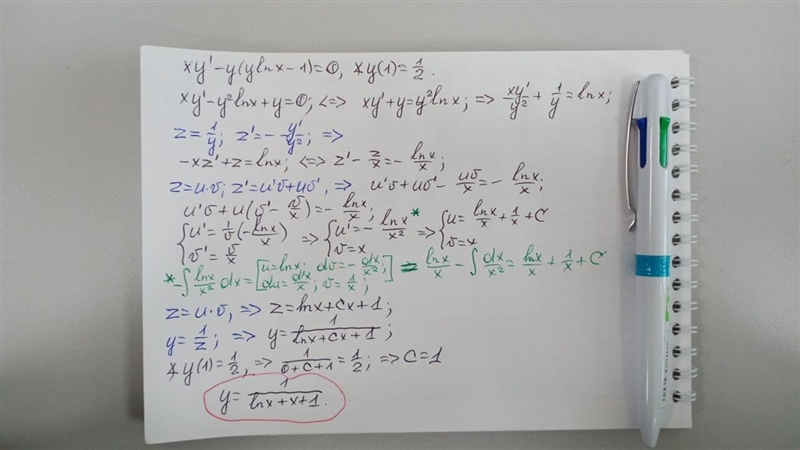 xy' - y(y ln x - 1) = 0, ∡ y(1) = 1/2.
xy' - y² ln x + y = 0; <=> xy' + y = y² ln x; => xy'/y² + 1/y = ln x;
z = 1/y; z' = - y'/y²; =>
-xz' + z = ln x; <=> z' - z/x = - ln x/x;
z = u·v; z' = u'v + uv', => u'v + uv' - uv/x = - ln x/x;
u'v + u(v' - v/x) = - ln x/x;
{u' = 1/v (- ln x/x) => {u' = - ln x/x² * => {u = ln x/x + 1/x + C
{v' = v/x {v = x {v = x
* - ∫ ln x/x² dx = [u = ln x; dv = - dx/x²; du = dx/x; v = 1/x;] = ln x/x - ∫ dx/x² = ln x/x + 1/x + C
z = u·v, => z = ln x + Cx + 1;
y = 1/z; => y = 1/(ln x + Cx + 1);
∡ y(1) = 1/2, => 1/(0 + C + 1) = 1/2; => C = 1
y = 1/(ln x + x + 1).